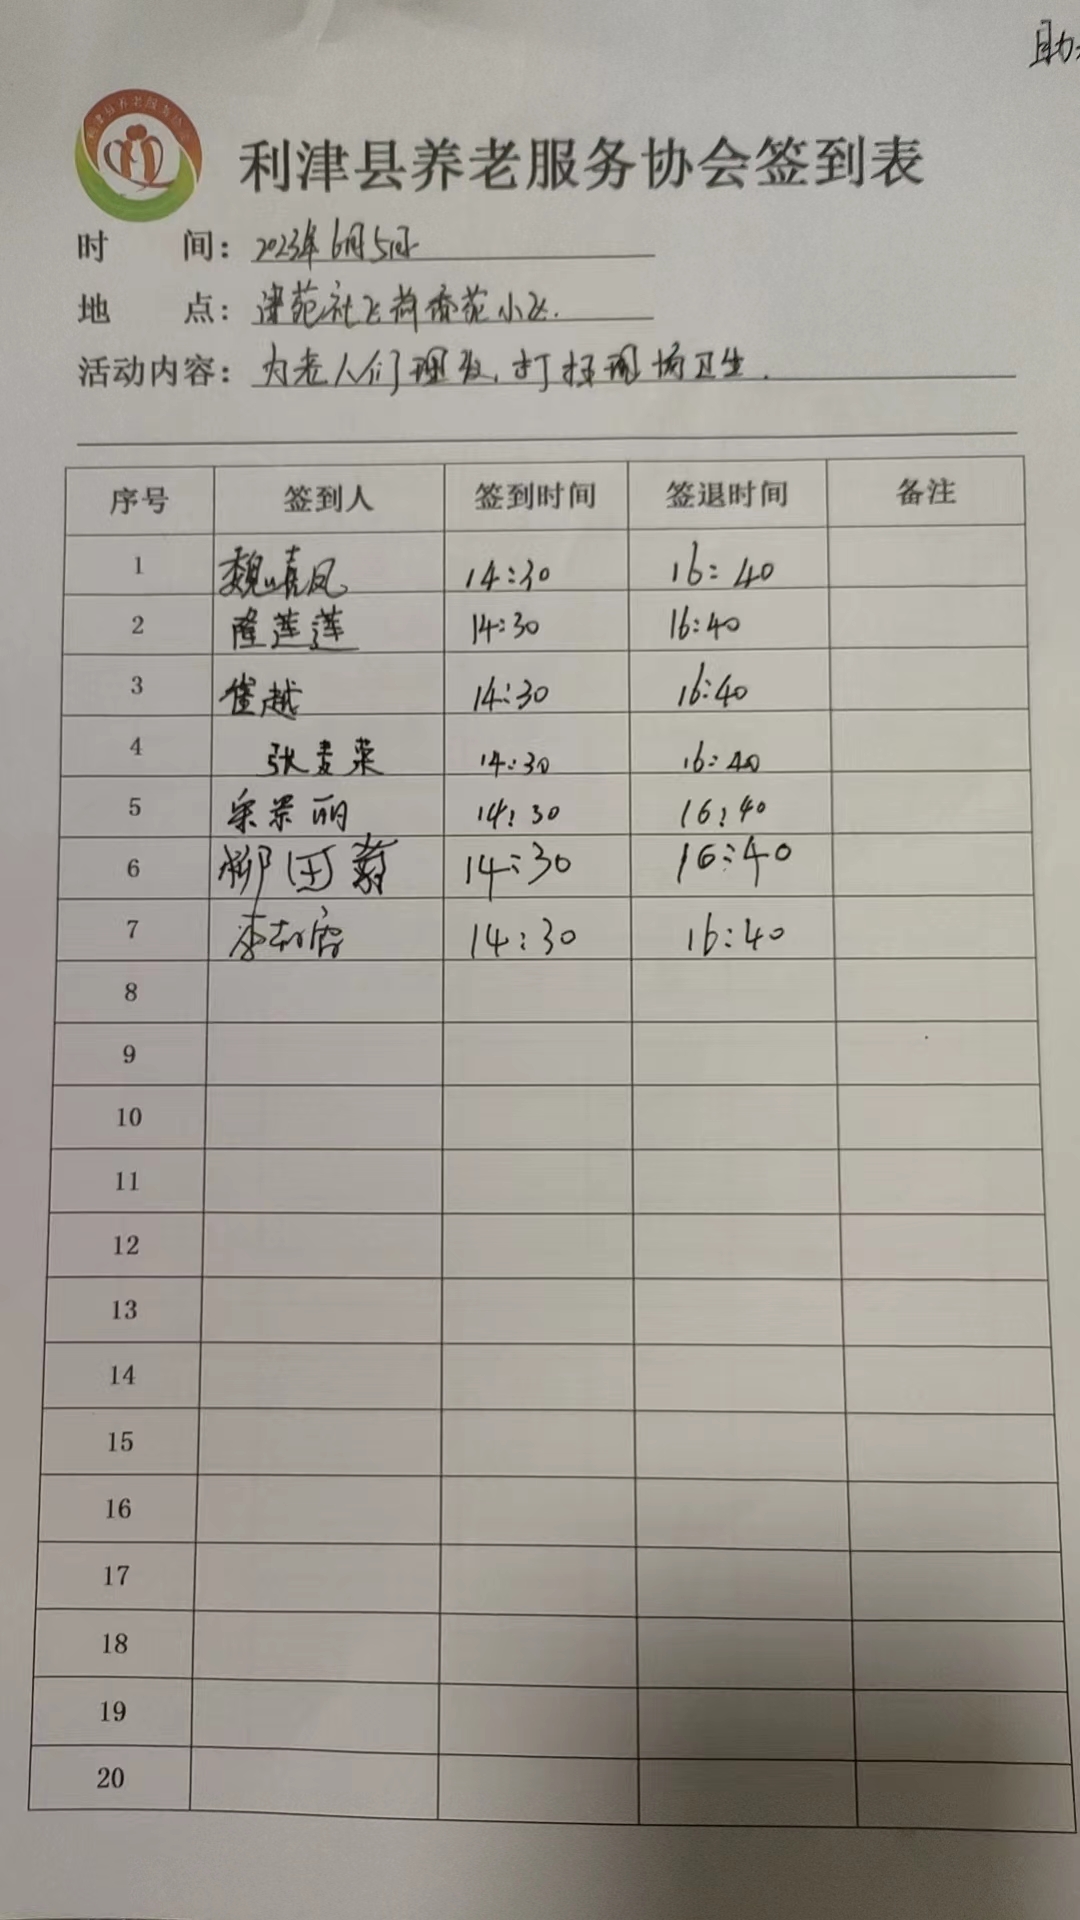 助
利津县养老服务协会
利津县养老服务协会签到表
时 间：2023年6月5日
地 点：津苑社区荷香苑小区.
活动内容：为老人们理发、打扫现场卫生.
序号 签到人 签到时间 签退时间 备注
1 魏嘉凤 14:30 16:40
2 隆莲莲 14:30 16:40
3 崔越 14:30 16:40
4 张麦荣 14:30 16:40
5 宋景丽 14:30 16:40
6 柳国 14:30 16:40
7 李 14:30 16:40
8
9
10
11
12
13
14
15
16
17
18
19
20